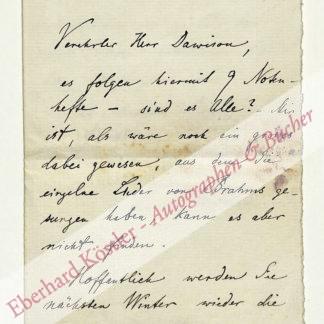 Verehrter Herr Dawison,
es folgen hiermit 9 Noten-
hefte – sind es Alle? – Mir
ist, als wäre noch ein
dabei gewesen, aus dem Sie
einzelne Lieder von Brahms ge-
sungen haben kann es aber
nicht finden.
Hoffentlich werden Sie
nächsten Winter wieder die
Eberhard Köstler - Autographen & Bücher